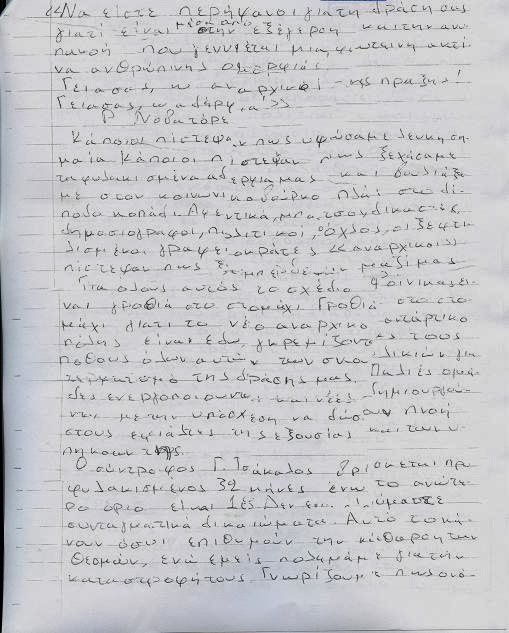 «Να είστε περήφανοι για τη δράση σας
γιατί είναι μέσα από την εξέγερση και την αν
που γεννιέται μια φωτεινή ακτί
να ανθρώπινης ομορφιάς
Γεια σας, ω αναρχικοί της πράξης!
Γεια σας, ω αδέρφια!»
Ρ. Νοβατόρε
Κάποιοι πίστεψαν πως υψώσαμε λευκή ση
μαία. Κάποιοι πίστεψαν πως ξεχάσαμε
τα φυλακισμένα αδέρφια μας και βαλτώ
με στον κοινωνικό βούρκο πλάι στο δί
ποδο κοπάδι. Αφεντικά, μπάτσοι, δικαστές,
δημοσιογράφοι, πολιτικοί, όχλος, οι ξεφτι
λισμένοι γραφειοκράτες «αναρχικοί»
πίστεψαν πως μαζί μας
Για όλους αυτούς το σχέδιο Φοίνικας εί
ναι γροθιά στο στομάχι. Γροθιά στο στο
μάχι γιατί το νέο αναρχικό αντάρτικο
πόλης είναι εδώ, γκρεμίζοντας τους
πόθους όλων αυτών των για
τερματισμό της δράσης μας. Παλιές ομά
δες ενεργοποιούνται και νέες δημιουργού
νται με την υπόσχεση να δώσουν πνοή
στους εφιάλτες της εξουσίας και των υ
πηκόων της.
Ο σύντροφος Γ. Τσάκαλος βρίσκεται προ
φυλακισμένος 32 μήνες ενώ το ανώτε
ρο όριο είναι 18. Δεν
συνταγματικά δικαιώματα. Αυτό το κά
νουν όσοι επιθυμούν την κάθαρση των
θεσμών, ενώ εμείς πολεμάμε για την
καταστροφή τους. Γνωρίζουμε πως